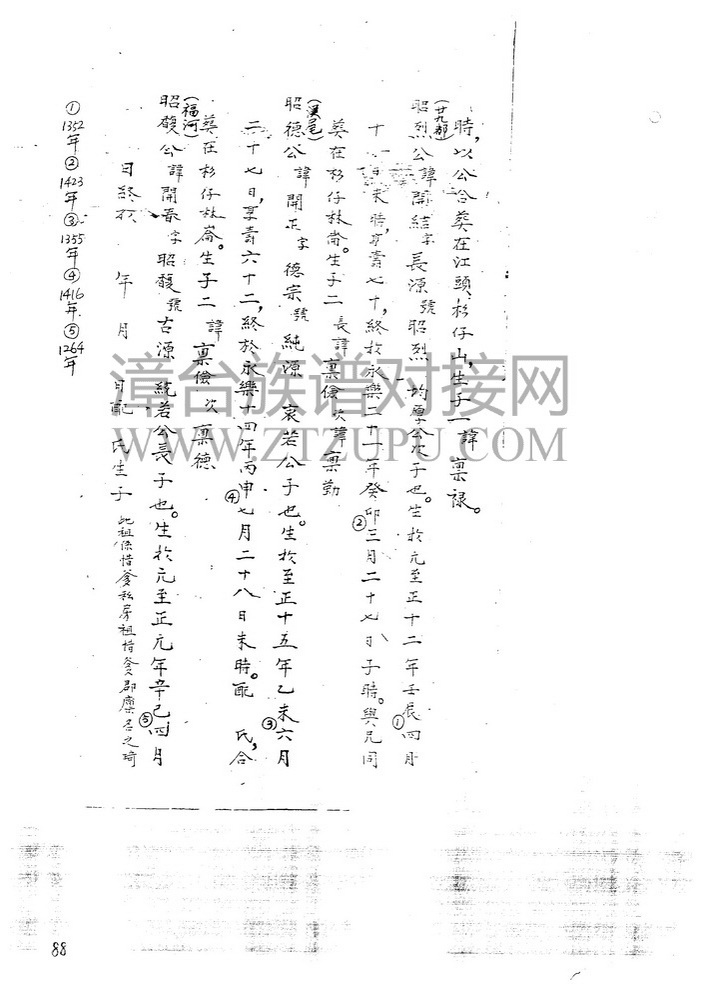 時,以公合葬在江頭杉仔山,生子一 諱 稟祿。
(廿九都)
昭烈公 諱開結字 長源 號 昭烈 均厚公次子也。生於元至正十二年壬辰①四月
十 日未時,享壽七十,終於永樂二十一年癸卯②三月二十七日子時。與兄同
葬在杉仔林崙。生子二 長諱 稟儉 次諱 稟勤
(溪尾)
昭德公 諱 開正 字 德宗 號 純源 哀若公子也。生於至正十五年乙未③六月
二十七日,享壽六十二,終於永樂十四年丙申④七月二十八日未時。配 氏,合
葬在杉仔林崙。生子二 諱 稟儉 次 稟德
(福河)
昭馥公 諱 開春 字 昭馥 號 古源 統若公長子也。生於元至正元年辛巳⑤四月
日終於 年 月 日配 氏生子 此祖係惜爹私房祖惜爹郡廩名之琦
①1352年②1423年③1355年④1416年⑤1264年
漳台族谱对接网
WWW.ZTZUPU.COM
88